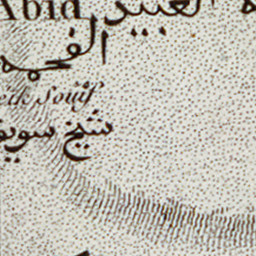 Abid العبيد
الفحمه
eik Souif
شيخ سويف